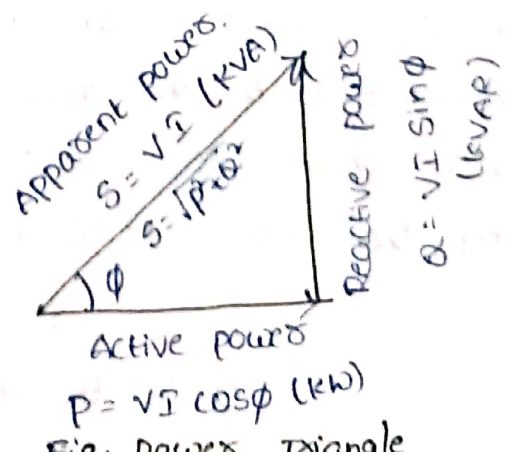 Apparent power.
S = VI (KVA)
S = √P²+Q²
Reactive power
Q = VI sinφ
(KVAR)
φ
Active power
P = VI cosφ (KW)
Fig. Power Triangle